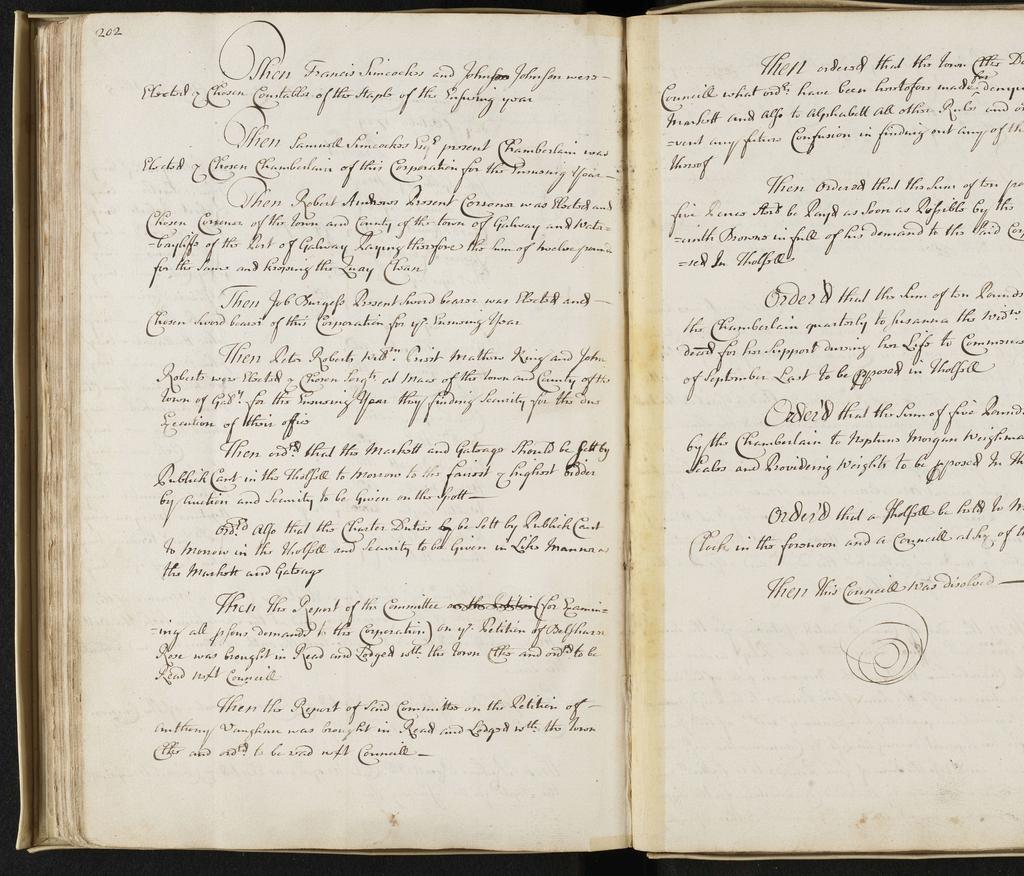 202
Then Francis Simcockes and John Johnson were
Elected & Chosen Constables of the Staple of the Ensuing year
Then Samuell Simcockes Esqr. present Chamberlain was
Elected & Chosen Chamberlain of this Corporation for the Ensuing Year
Then Robert Andrews Present Coroner was Elected and
Chosen Coroner of the Town and County of the town of Galway and Water
=bayliffe of the Port of Galway Paying therefore the sum of twelve pounds
for the Same and keeping the Quay Clean
Then Job Burgess Present Sword bearer was Elected and
Chosen Sword bearer of this Corporation for ye. Ensuing Year
Then Peter Roberts Willm. Crist Mathew King and John
Roberts were Elected & Chosen Sergts. at Mace of the town and County of the
town of Galw. for the Ensuing Year they finding Security for the due
Execution of their office
Then ordrd that the Markett and Gateage Should be Sett by
Publick Cant in the Tholsell to Morrow to the fairest & highest bidder
by Auction and Security to be Given on the Spott
Ordrd Also that the Charter Duties be Sett by Publick Cant
To Morrow in the Tholsell and Security to be Given in Like Manner as
the Markett and Gateage
Then the Report of the Committee on the Petition (for Examin-
=ing all psons demands to this Corporation) on ye. Petition of
Rose was brought in Read and Lodged wth. the Town Clke and ordrd to be
Read next Councill
Then the Report of Said Committee on the Petition of
Anthony Vaughan was brought in Read and Lodged wth. the Town
Clke and ordrd. to be read next Councill
Then ordered that the town Clke
Councill what ordrs. have been heretofore made for
Markett and Also to Alphabett all other Rules and
=vent any future Confusion in finding out any of th
thereof
Then Ordered that the Sume of ten
five Pence Ster be Payd as Soon as Possible by the
Browne in full of his demand to the Said
=sed In Tholsell
Order'd that the Sum of ten Pounds
the Chamberlain quarterly to Susanna the Widw.
decd for her Support during her Life to Commence
of September Last to be pposed in Tholsell
Order'd that the Sum of five Pounds
by the Chamberlain to Neptune Morgan Weighma
Scales and Providering Weights to be pposed In Th
Order'd that a Tholsell be held to M
Clock in the forenoon and a Councill at Six of th
Then this Councill was disolved